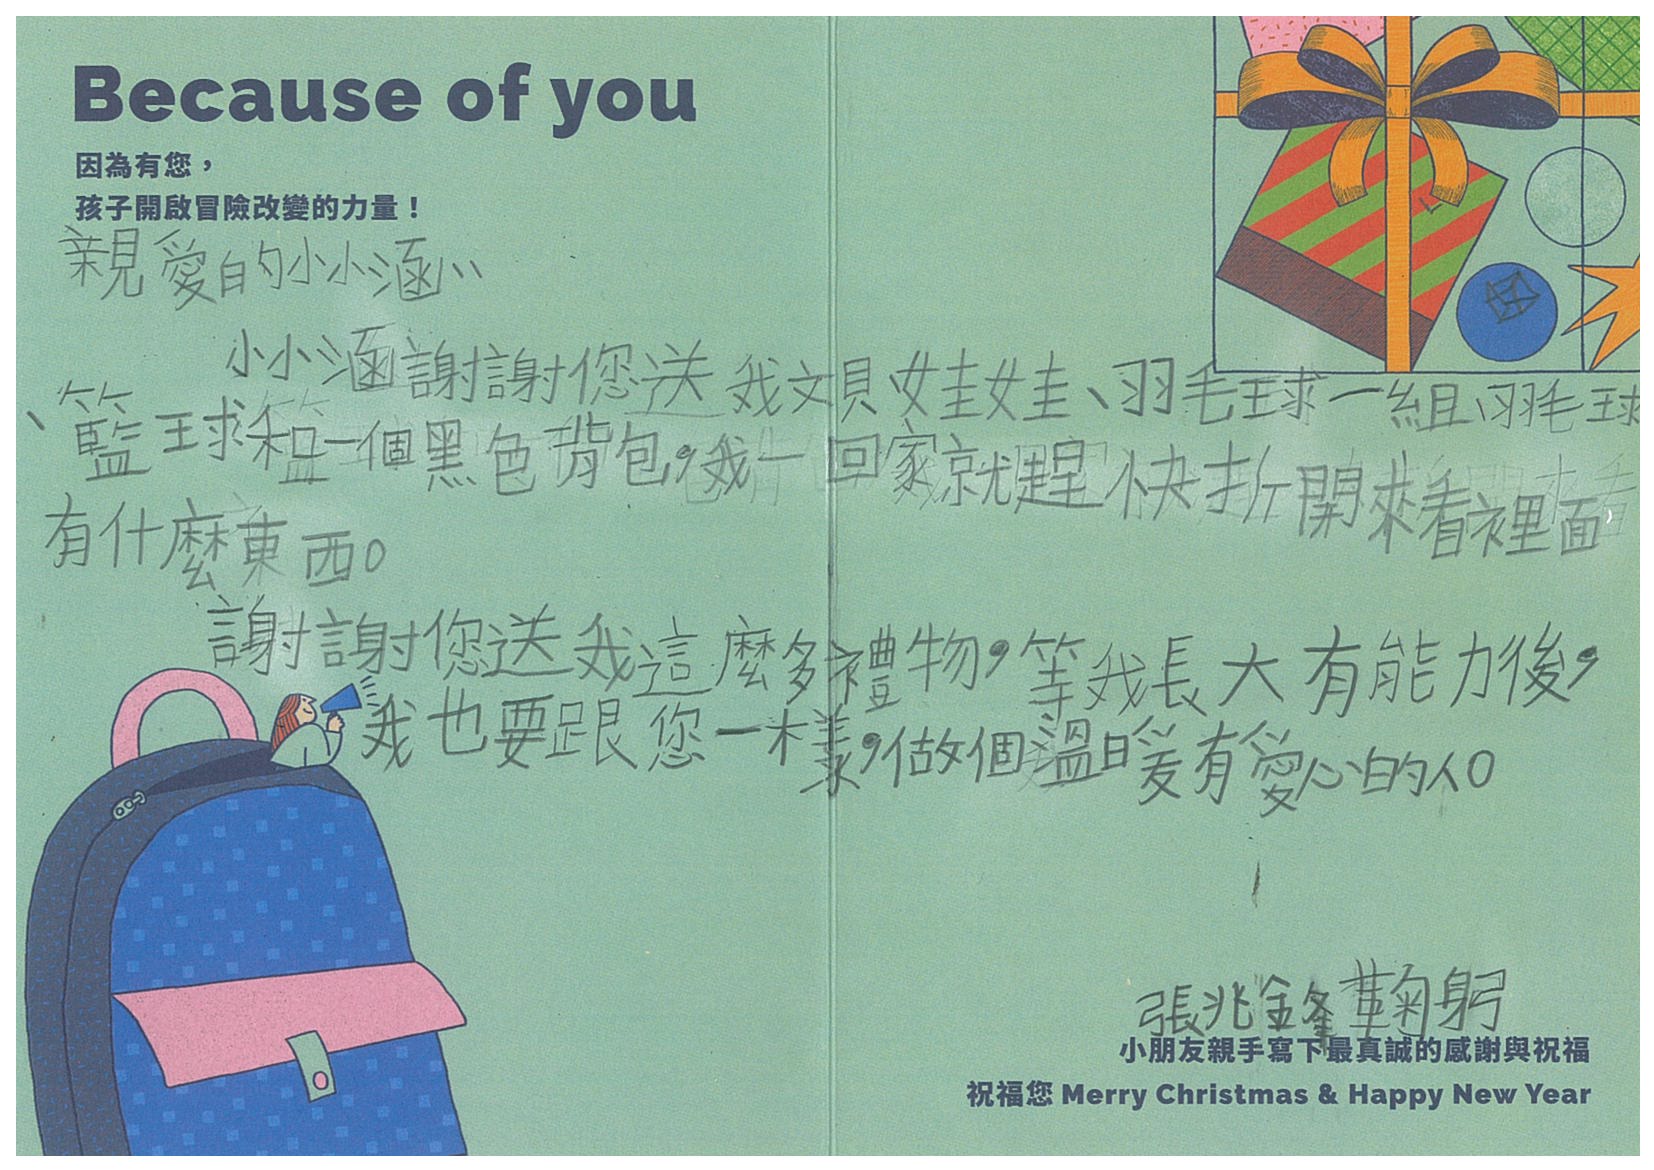 Because of you
因為有您，
孩子開啟冒險改變的力量！
親愛的小小涵:
小小涵謝謝您送我文具娃娃、羽毛球一組、羽毛球
、籃球和一個黑色背包，我一回家就趕快折開來看裡面
有什麼東西。
謝謝您送我這麼多禮物，等我長大有能力後，
我也要跟您一樣，做個溫暖有愛心的人。
張兆鋒鞠躬
小朋友親手寫下最真誠的感謝與祝福
祝福您 Merry Christmas & Happy New Year